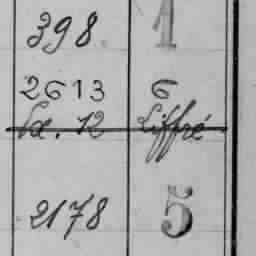 398 1
2613 6
Ex. 12 Liffré
2178 5